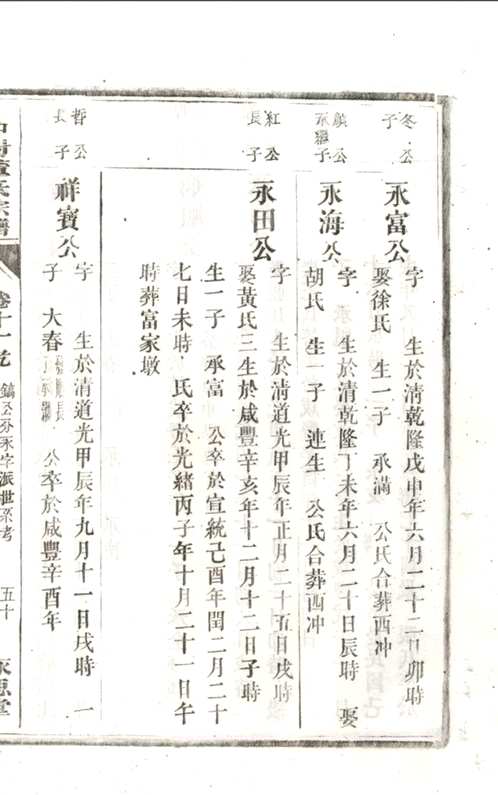 冬公
子
永富公
字 生於清乾隆戊申年六月二十二日卯時
娶徐氏 生一子 承滿 公氏合葬西冲
公
承繼子
永海公
字 生於清乾隆丁未年六月二十日辰時 娶
胡氏 生一子 連生 公氏合葬西冲
紅公
長子
永田公
字 生於清道光甲辰年正月二十五日戌時
娶黃氏三生於咸豐辛亥年十二月十二日子時
生一子 承富 公卒於宣統己酉年閏二月二十
七日未時 氏卒於光緒丙子年十月二十一日午
時葬富家墩
哲公
長子
祥寶公
字 生於清道光甲辰年九月十一日戌時 一
子 大春 公卒於咸豐辛酉年
氏宗譜
卷十一
派世系考
五十
永思堂